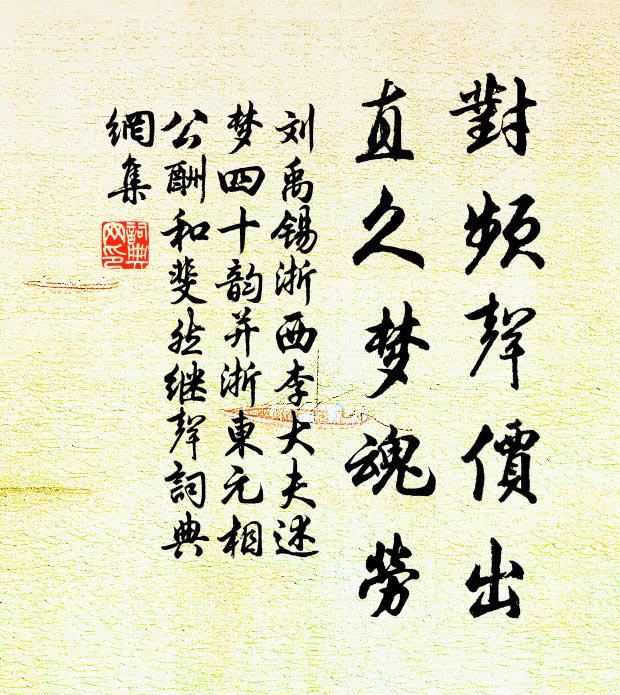 對頻聲價出
直久梦魂勞
刘禹锡浙西李大夫述
梦四十韵并浙東元相
公酬和斐然继聲詞典
網集
詞典
网印